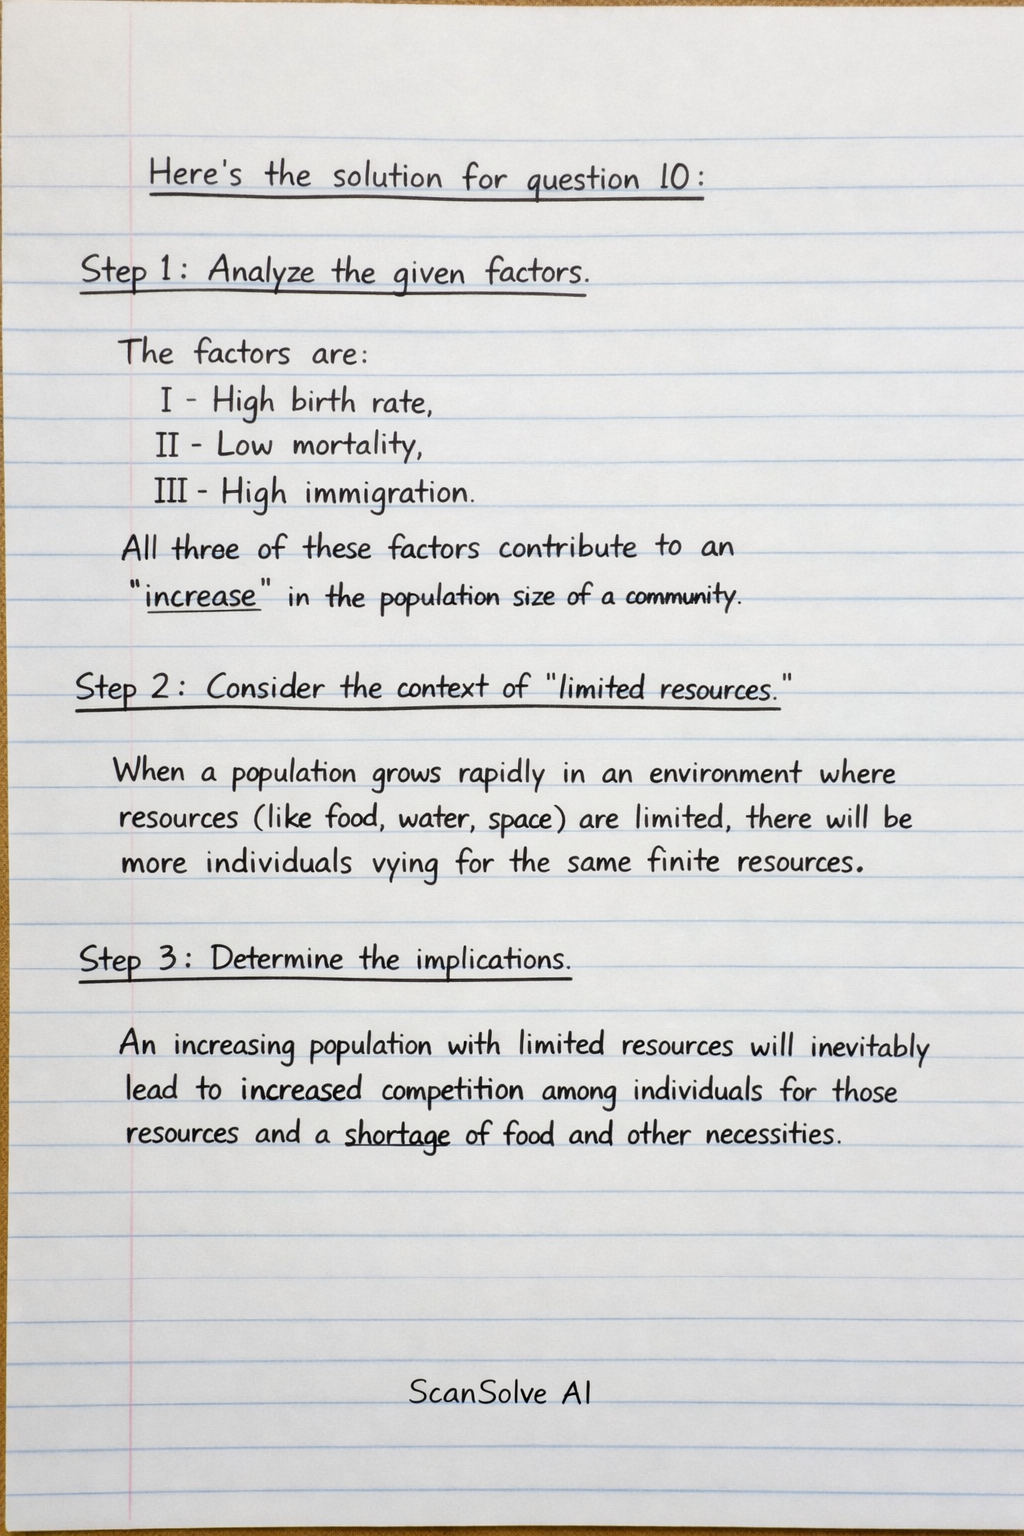 Here's the solution for question 10:
Step 1: Analyze the given factors.
The factors are:
I - High birth rate,
II - Low mortality,
III - High immigration.
All three of these factors contribute to an
"increase" in the population size of a community.
Step 2: Consider the context of "limited resources."
When a population grows rapidly in an environment where
resources (like food, water, space) are limited, there will be
more individuals vying for the same finite resources.
Step 3: Determine the implications.
An increasing population with limited resources will inevitably
lead to increased competition among individuals for those
resources and a shortage of food and other necessities.
ScanSolve AI